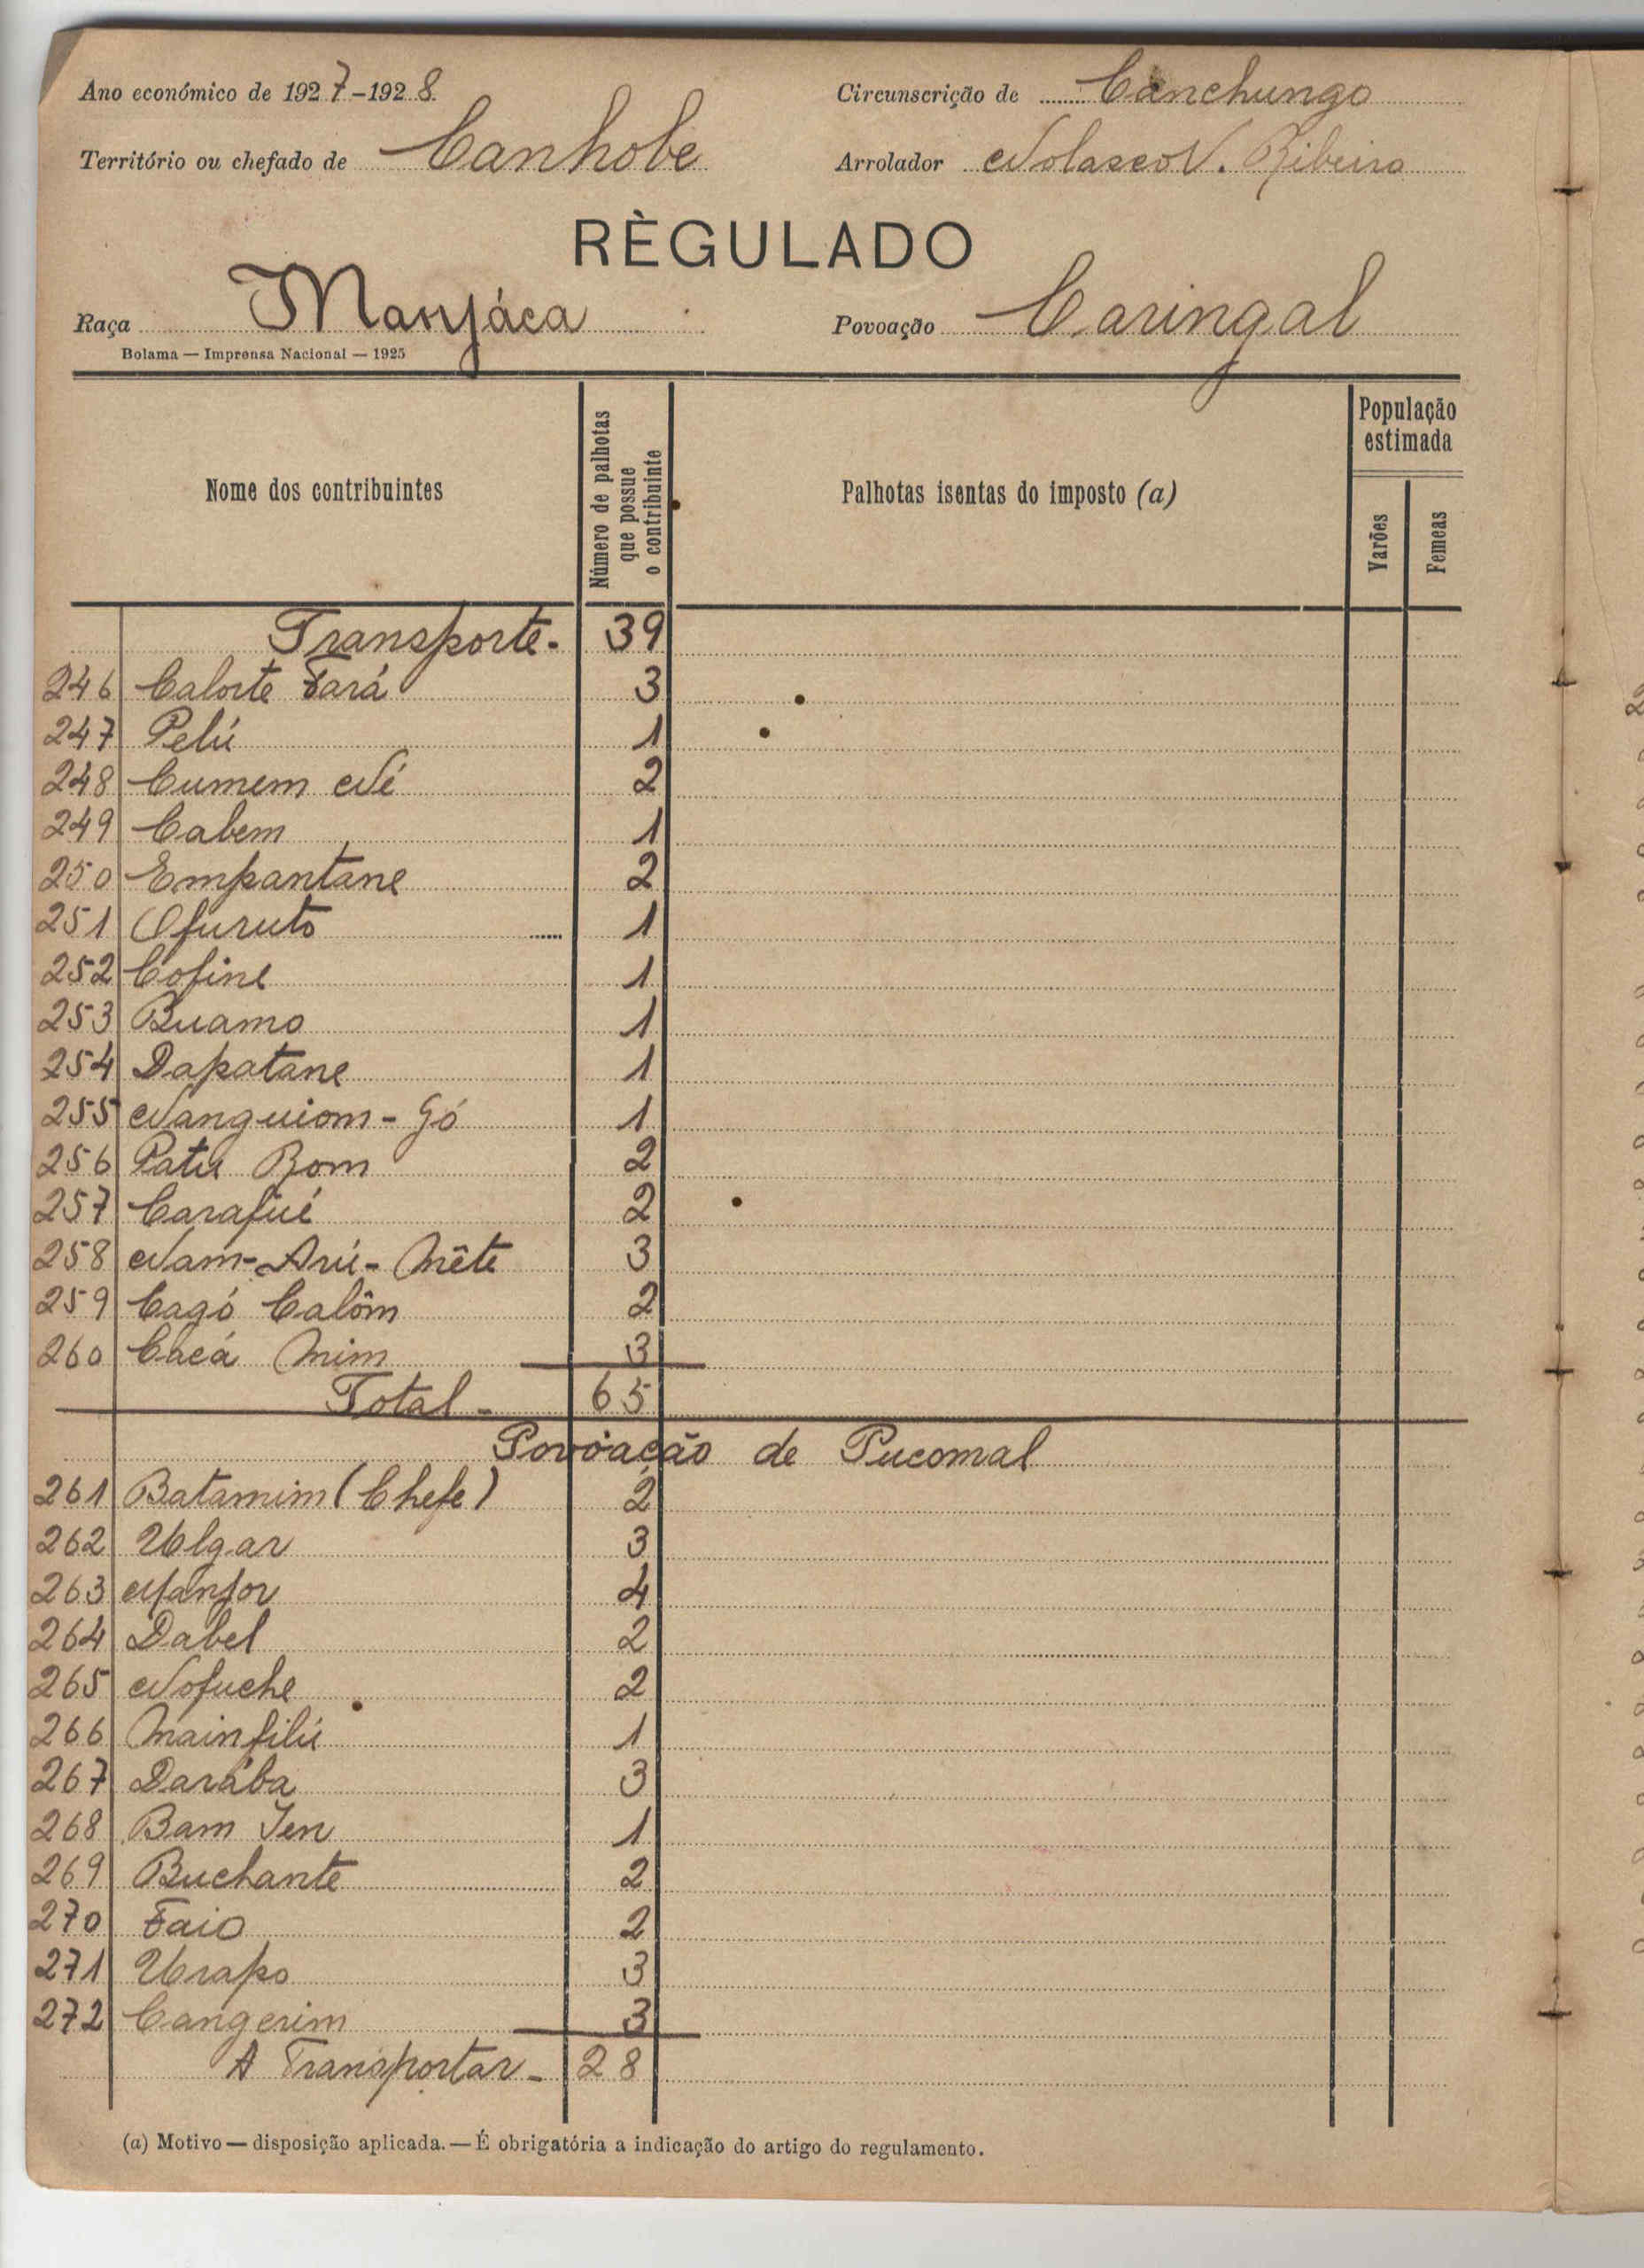 Ano económico de 1927-1928
Circunscrição de Canchungo
Território ou chefado de Canhobe
Arrolador Nolasco V. Ribeiro
RÈGULADO
Raça Manjáca
Povoação Caringal
Bolama — Imprensa Nacional — 1925
Nome dos contribuintes
Número de palhotas que possue o contribuinte
Palhotas isentas do imposto (a)
População estimada
Varões
Femeas
Transporte - 39
246 Calorte Fará 3
247 Pelú 1
248 Cumem Né 2
249 Cabem 1
250 Empantane 2
251 Ofuruto 1
252 Cofine 1
253 Buamo 1
254 Dapatane 1
255 Nanguiom - Gó 1
256 Patu Bom 2
257 Carafué 2
258 Nam-Arú-Mête 3
259 Cagó Calôm 2
260 Cacá Mim 3
Total - 65
Povoação de Pucomal
261 Batamim (Chefe) 2
262 Ulgar 3
263 Manjor 4
264 Dabel 2
265 Nofuche 2
266 Mainfilú 1
267 Darába 3
268 Bam Ien 1
269 Buchante 2
270 Faio 2
271 Urapo 3
272 Cangerim 3
A Transportar - 28
(a) Motivo — disposição aplicada. — É obrigatória a indicação do artigo do regulamento.